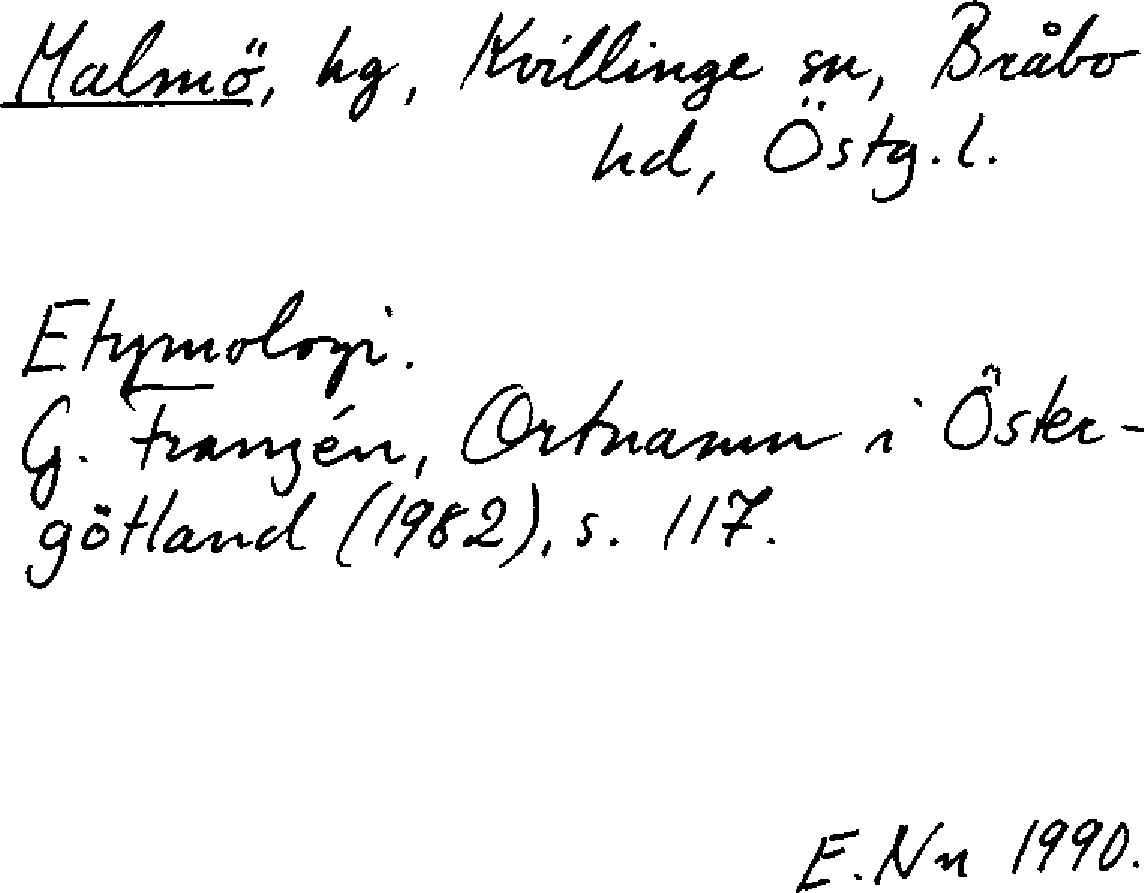 Malmö, hg, Kvillinge sn, Bråbo
hd, Östg.l.
Etymologi.
G. Franzén, Ortnamn i Öster-
götland (1982), s. 117.
E.Nn 1990.